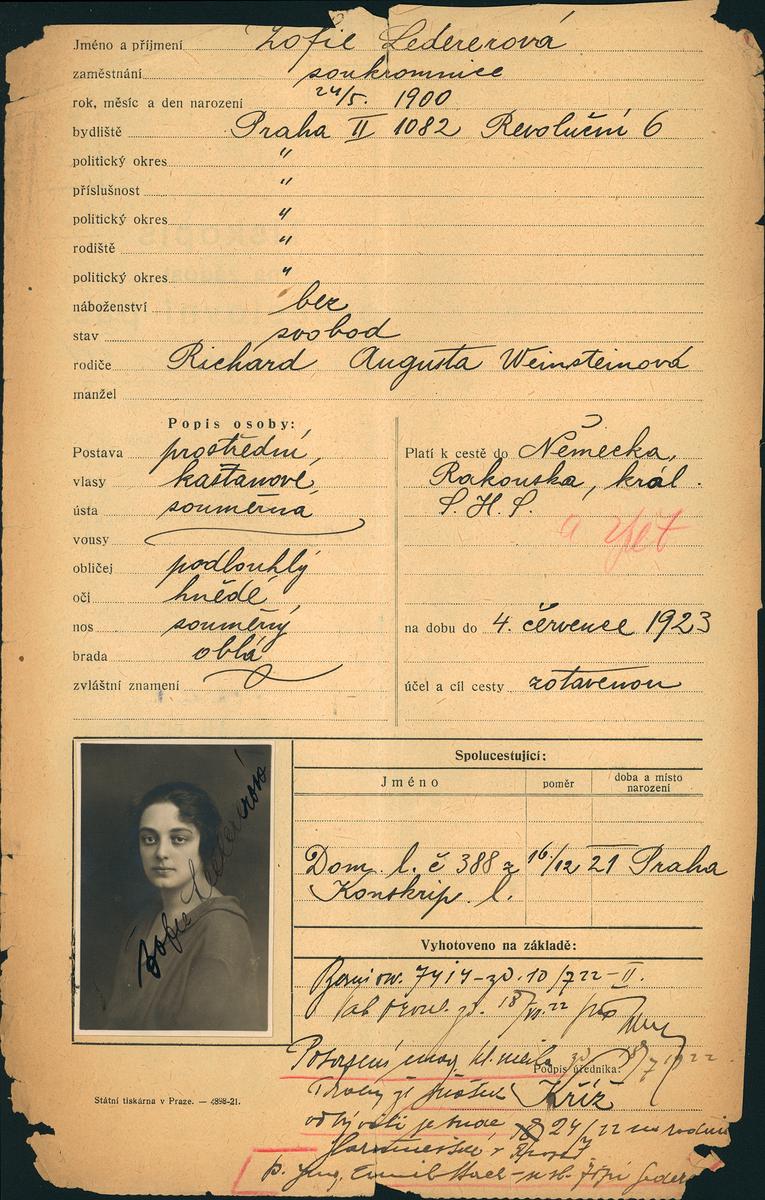 Jméno a příjmení Zofie Ledererová
zaměstnání soukromnice
rok, měsíc a den narození 24/5. 1900
bydliště Praha II 1082 Revoluční 6
politický okres "
příslušnost "
politický okres "
rodiště "
politický okres "
náboženství bez
stav svobod
rodiče Richard Augusta Weinsteinová
manžel
Popis osoby:
Postava prostřední,
vlasy kaštanové,
ústa souměrná
vousy
obličej podlouhlý
oči hnědé,
nos souměrný
brada oblá
zvláštní znamení
Platí k cestě do Německa,
Rakouska, král.
S. H. S.
a zpět
na dobu do 4. července 1923
účel a cíl cesty zotavenou
Zofie Ledererová
Spolucestující:
Jméno poměr doba a místo narození
Dom. l. č 388 z 16/12 21 Praha
Konskrip. l.
Vyhotoveno na základě:
7414 10/7 22 - II.
22
Potvrzení
Podpis úředníka:
Kříž
je 24/7 22
Ing. Emil
Státní tiskárna v Praze. — 4898-21.